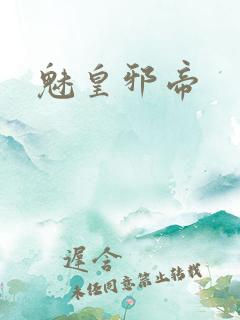 魅皇邪帝
遲含
未经同意禁止转载